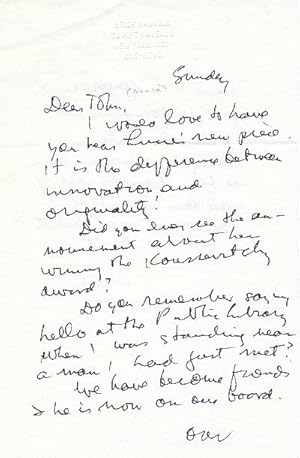 Sunday
Dear John,
I would love to have
you hear new piece.
it is the difference between
innovation and
originality!
Did you ever see the an-
nouncement about her
winning the Koussevitzky
award?
Do you remember saying
hello at the Public Library
when I was standing near
a man I had just met?
We have become friends
& he is now on our board.
over